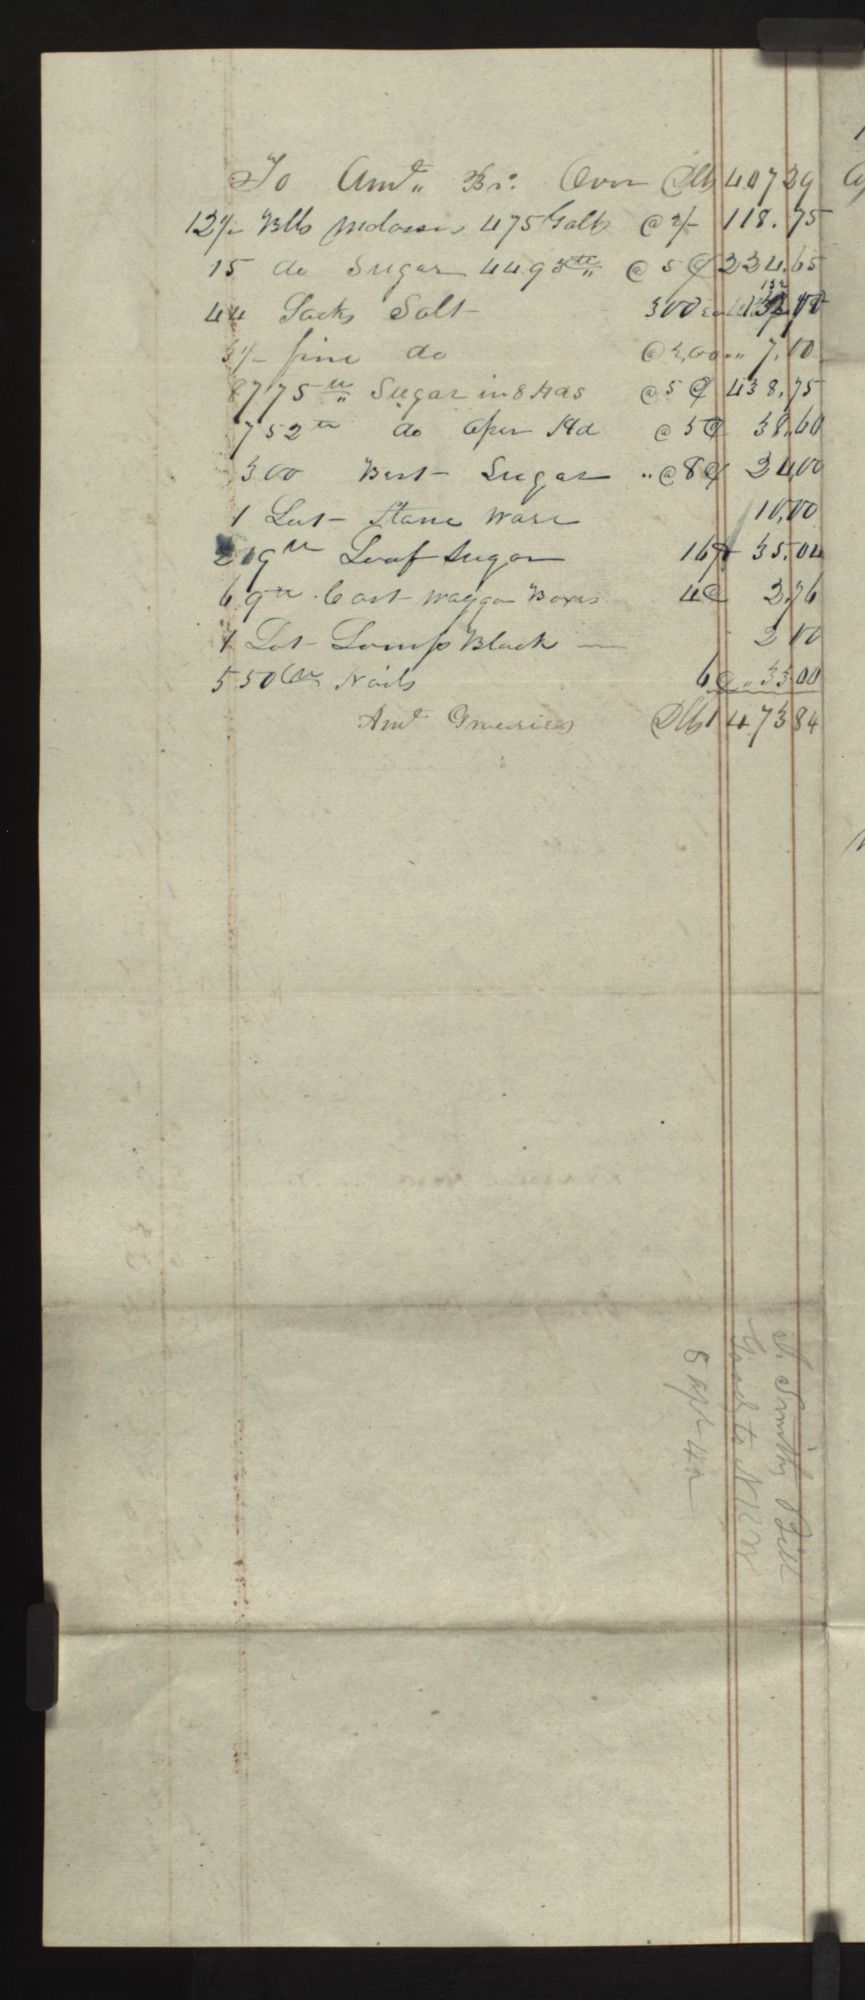 To Amt. Br. Over Dlls 407 39
12½ Blls Molasses 475 Galls @ 2/- 118.75
15 do Sugar 4493 lb @ 5¢ 224.65
44 Sacks Salt 300 132.00
3½ fine do @ 2,00 7.00
8775 lb Sugar in 8 Hds @ 5¢ 438.75
752 lb do Open Hd @ 5¢ 38.60
300 Best Sugar @ 8¢ 24.00
1 Lot Stone Ware 10.00
219 lb Loaf Sugar 16¢ 35.04
69 lb Cast Waggon Boxes 4¢ 2.76
1 Lot Lamp Black 2 00
550 lb Nails 6¢ 33.00
Amt Groceries Dlls 1473 84
Smiths Bill
Goods to
8 Apl 42